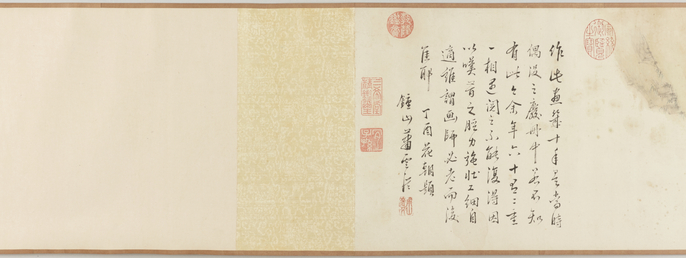 作此畫幾十年矣當時
偶沒之廢册中若不知
有此今余年六十有二重
一相遇閱之不能復得因
以嘆昔之腔力強壯工細自
適誰謂画師必老而後
佳耶　丁酉花朝題
鍾山蕭雲從